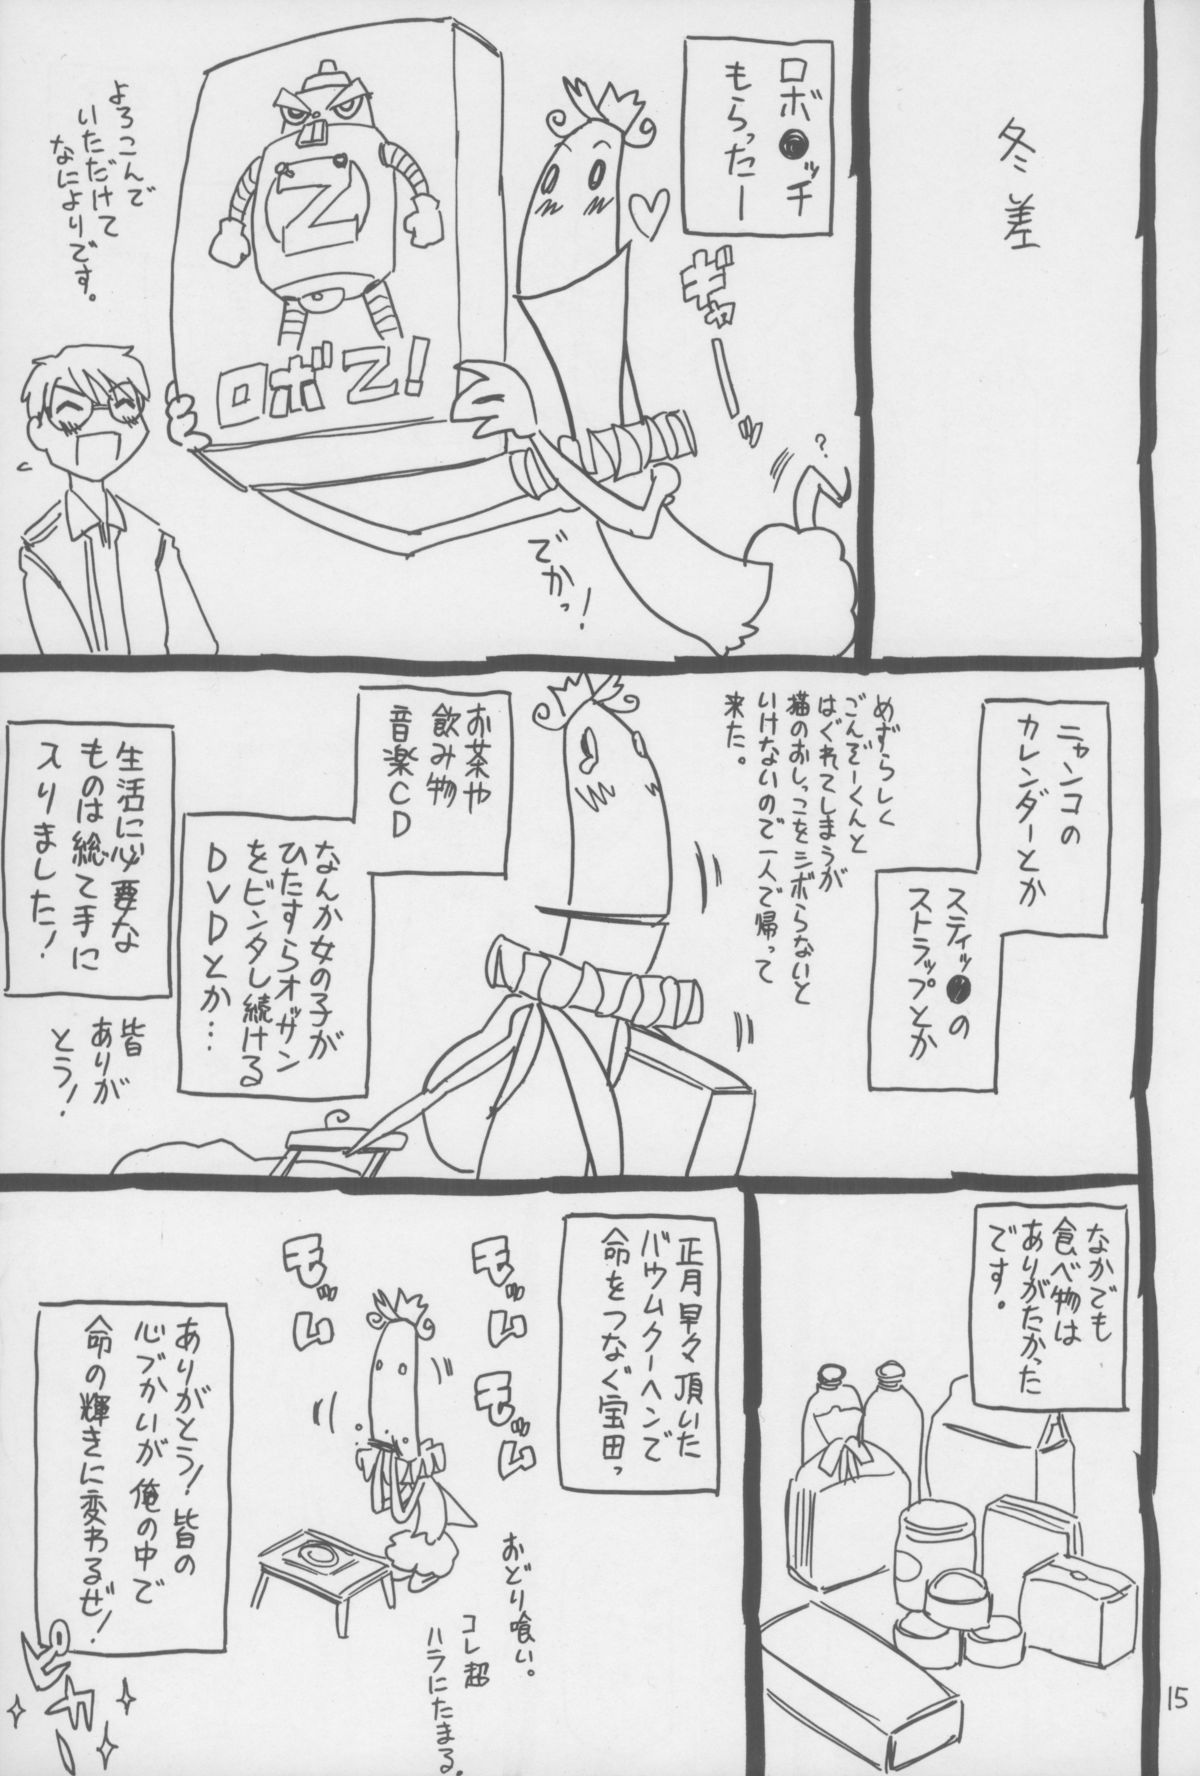 冬差
ロボ●ッチ
もらったー
ギャーーッ
?
でかっ!
ロボZ!
Z
よろこんで
いただけて
なによりです。
ニャンコの
カレンダーとか
スティッ●の
ストラップとか
めずらしく
ごんぞーくんと
はぐれてしまうが
猫のおしっこをシボらないと
いけないので一人で帰って
来た。
お茶や
飲み物
音楽CD
なんか女の子が
ひたすらオッサン
をビンタし続ける
DVDとか…
生活に必要な
ものは総て手に
入りました!
皆
ありが
とう!
なかでも
食べ物は
ありがたかった
です。
正月早々頂いた
バウムクーヘンで
命をつなぐ宝田っ
モッム
モッム
モッム
おどり喰い。
コレ超
ハラにたまる。
ありがとう!皆の
心づかいが俺の中で
命の輝きに変わるぜ!
ピカー
15